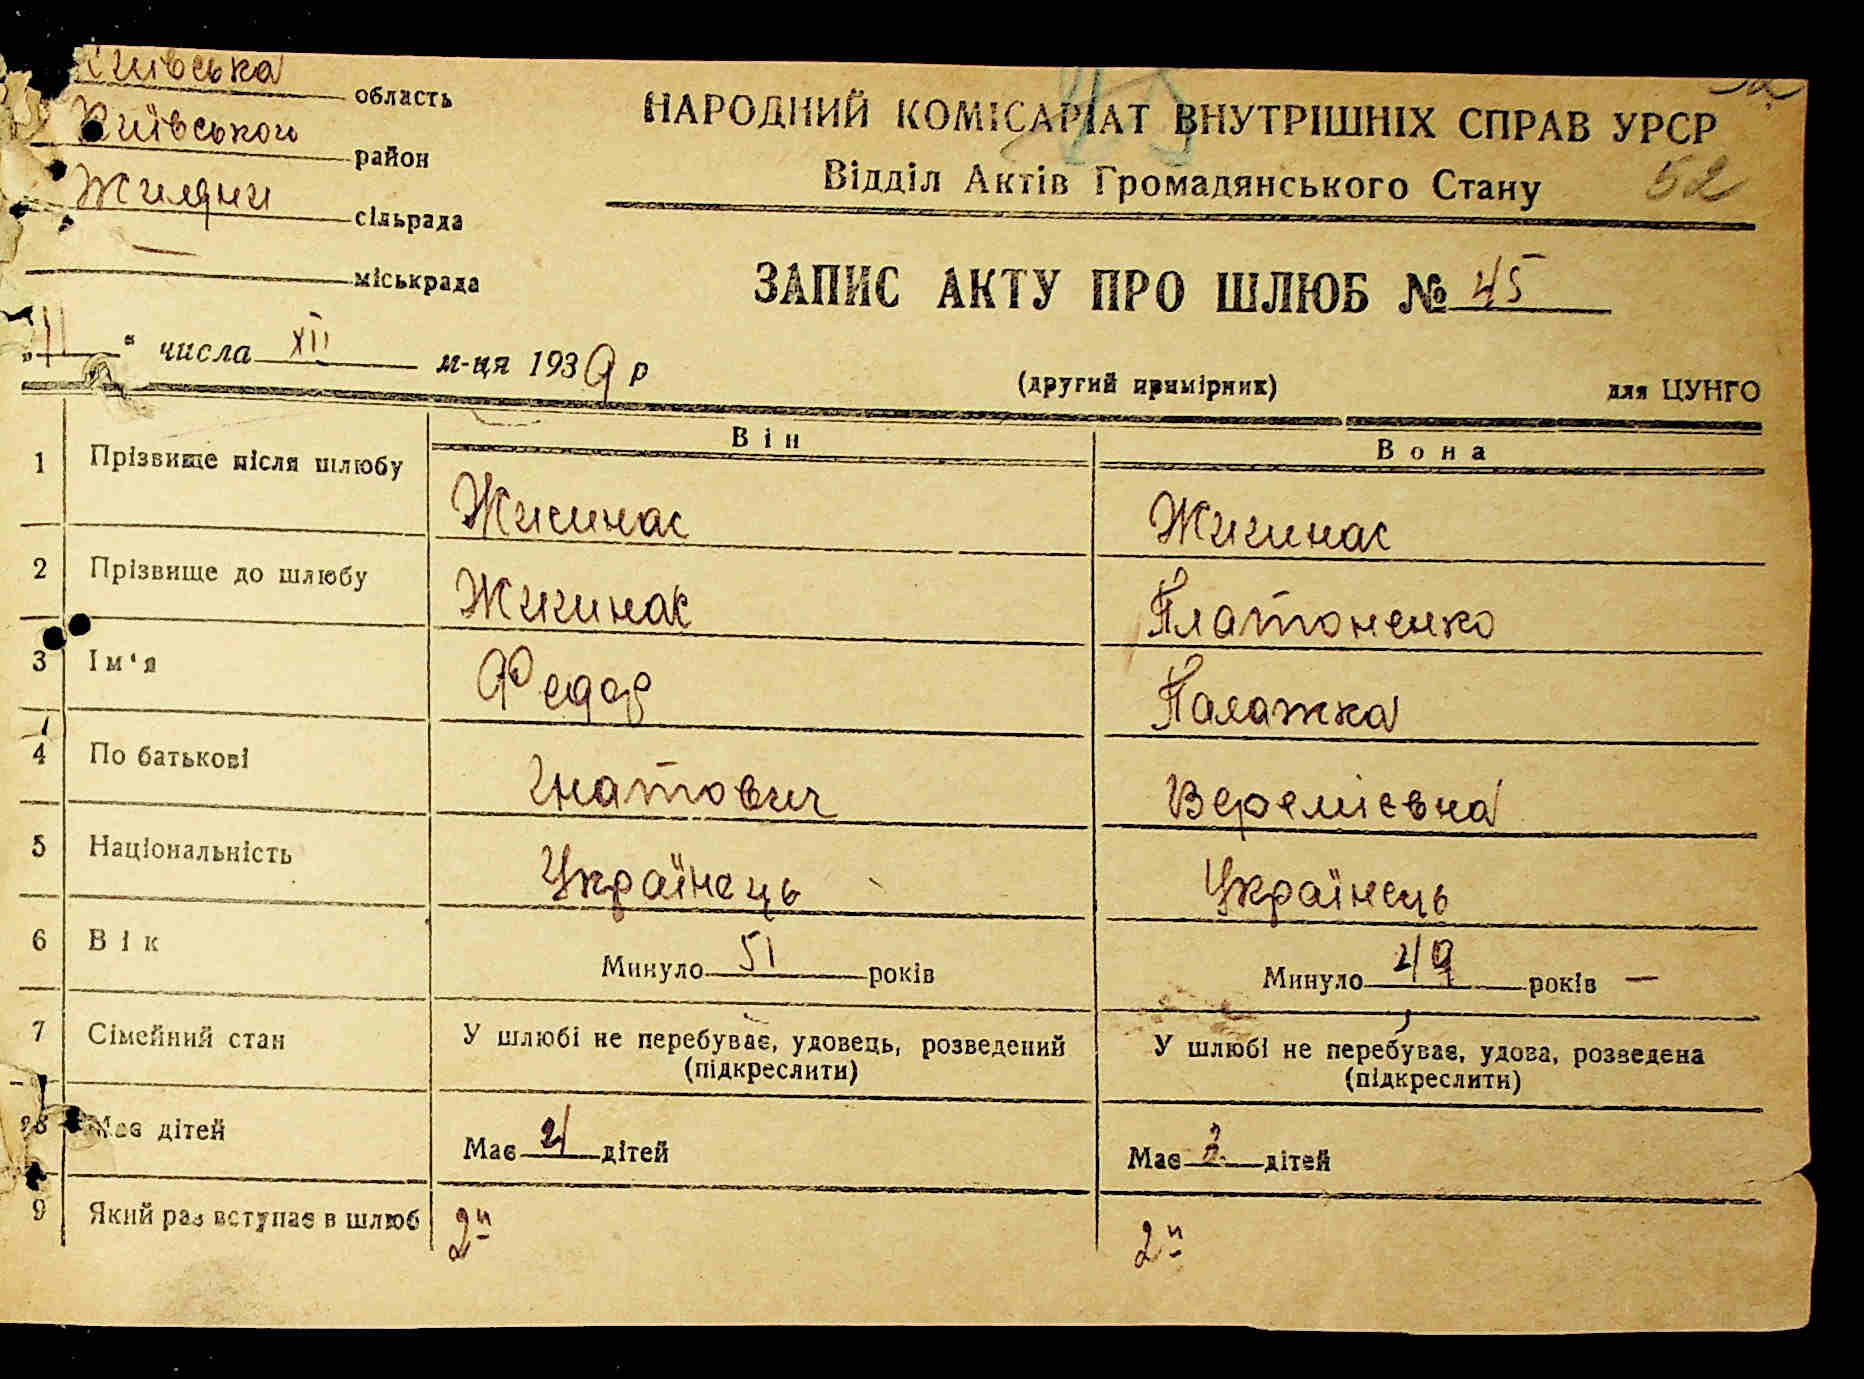 Київська область
Київської район
Жиляни сільрада
— міськрада
НАРОДНИЙ КОМІСАРІАТ ВНУТРІШНІХ СПРАВ УРСР
Відділ Актів Громадянського Стану
52
ЗАПИС АКТУ ПРО ШЛЮБ № 45
„11“ числа XII м-ця 1939 р
(другий примірник) для ЦУНГО
Він Вона
1 Прізвище після шлюбу Жижинас Жижинас
2 Прізвище до шлюбу Жижинас Платоненко
3 Ім'я Федор Палажка
4 По батькові Гнатович Веремієвна
5 Національність Українець Українець
6 Вік Минуло 51 років Минуло 49 років —
7 Сімейний стан У шлюбі не перебуває, удовець, розведений (підкреслити) У шлюбі не перебуває, удова, розведена (підкреслити)
8 Має дітей Має 4 дітей Має 2 дітей
9 Який раз вступає в шлюб 2й 2й